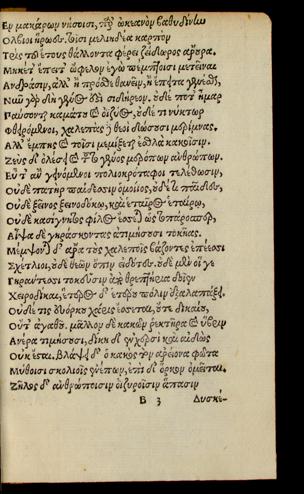 Εν μακάρων νήσοισι, παρ᾽ ὠκεανὸν βαθυδίνην
Ολβιοι ἥρωες, τοῖσι μελιηδέα καρπὸν
Τρὶς τοῦ ἔτους θάλλοντα φέρει ζείδωρος ἄρουρα.
Μηκέτ᾽ ἔπειτ᾽ ὤφελον ἐγὼ πέμπτοισι μετεῖναι
Ανδράσιν, ἀλλ᾽ ἢ πρόσθε θανεῖν, ἢ ἔπειτα γενέσθαι,
Νῦν γὰρ δὴ γένος ἐστὶ σιδήρεον. οὐδέ ποτ᾽ ἦμαρ
Παύσονται καμάτου καὶ ὀϊζύος, οὐδέ τι νύκτωρ
Φθειρόμενοι, χαλεπὰς δὲ θεοὶ δώσουσι μερίμνας.
Αλλ᾽ ἔμπης καὶ τοῖσι μεμίξεται ἐσθλὰ κακοῖσιν.
Ζεὺς δ᾽ ὀλέσει καὶ τοῦτο γένος μερόπων ἀνθρώπων.
Εὖτ᾽ ἂν γεινόμενοι πολιοκρόταφοι τελέθωσιν,
Οὐδὲ πατὴρ παίδεσσιν ὁμοίιος, οὐδέ τι παῖδες,
Οὐδὲ ξεῖνος ξεινοδόκῳ, καὶ ἑταῖρος ἑταίρῳ,
Οὐδὲ κασίγνητος φίλος ἔσσεται ὡς τοπάροσπερ,
Αἶψα δὲ γηράσκοντας ἀτιμήσουσι τοκῆας.
Μέμψονται δ᾽ ἄρα τοὺς χαλεποῖς βάζοντες ἐπέεσσι
Σχέτλιοι, οὐδὲ θεῶν ὄπιν εἰδότες. οὐδὲ μὲν οἵ γε
Γηράντεσσι τοκεῦσιν ἀπὸ θρεπτήρια δοῖεν
Χειροδίκαι, ἕτερος δ᾽ ἑτέρου πόλιν ἐξαλαπάξει.
Οὐδέ τις εὐόρκου χάρις ἔσσεται, οὔτε δικαίου,
Οὔτ᾽ ἀγαθοῦ. μᾶλλον δὲ κακῶν ῥεκτῆρα καὶ ὕβριν
Ανέρα τιμήσουσι, δίκη δ᾽ ἐν χερσὶ καὶ αἰδὼς
Οὐκ ἔσται. βλάψει δ᾽ ὁ κακὸς τὸν ἀρείονα φῶτα
Μύθοισι σκολιοῖς ἐνέπων, ἐπὶ δ᾽ ὅρκον ὀμεῖται.
Ζῆλος δ᾽ ἀνθρώποισιν ὀϊζυροῖσιν ἅπασιν
B 3 Δυσκέ-